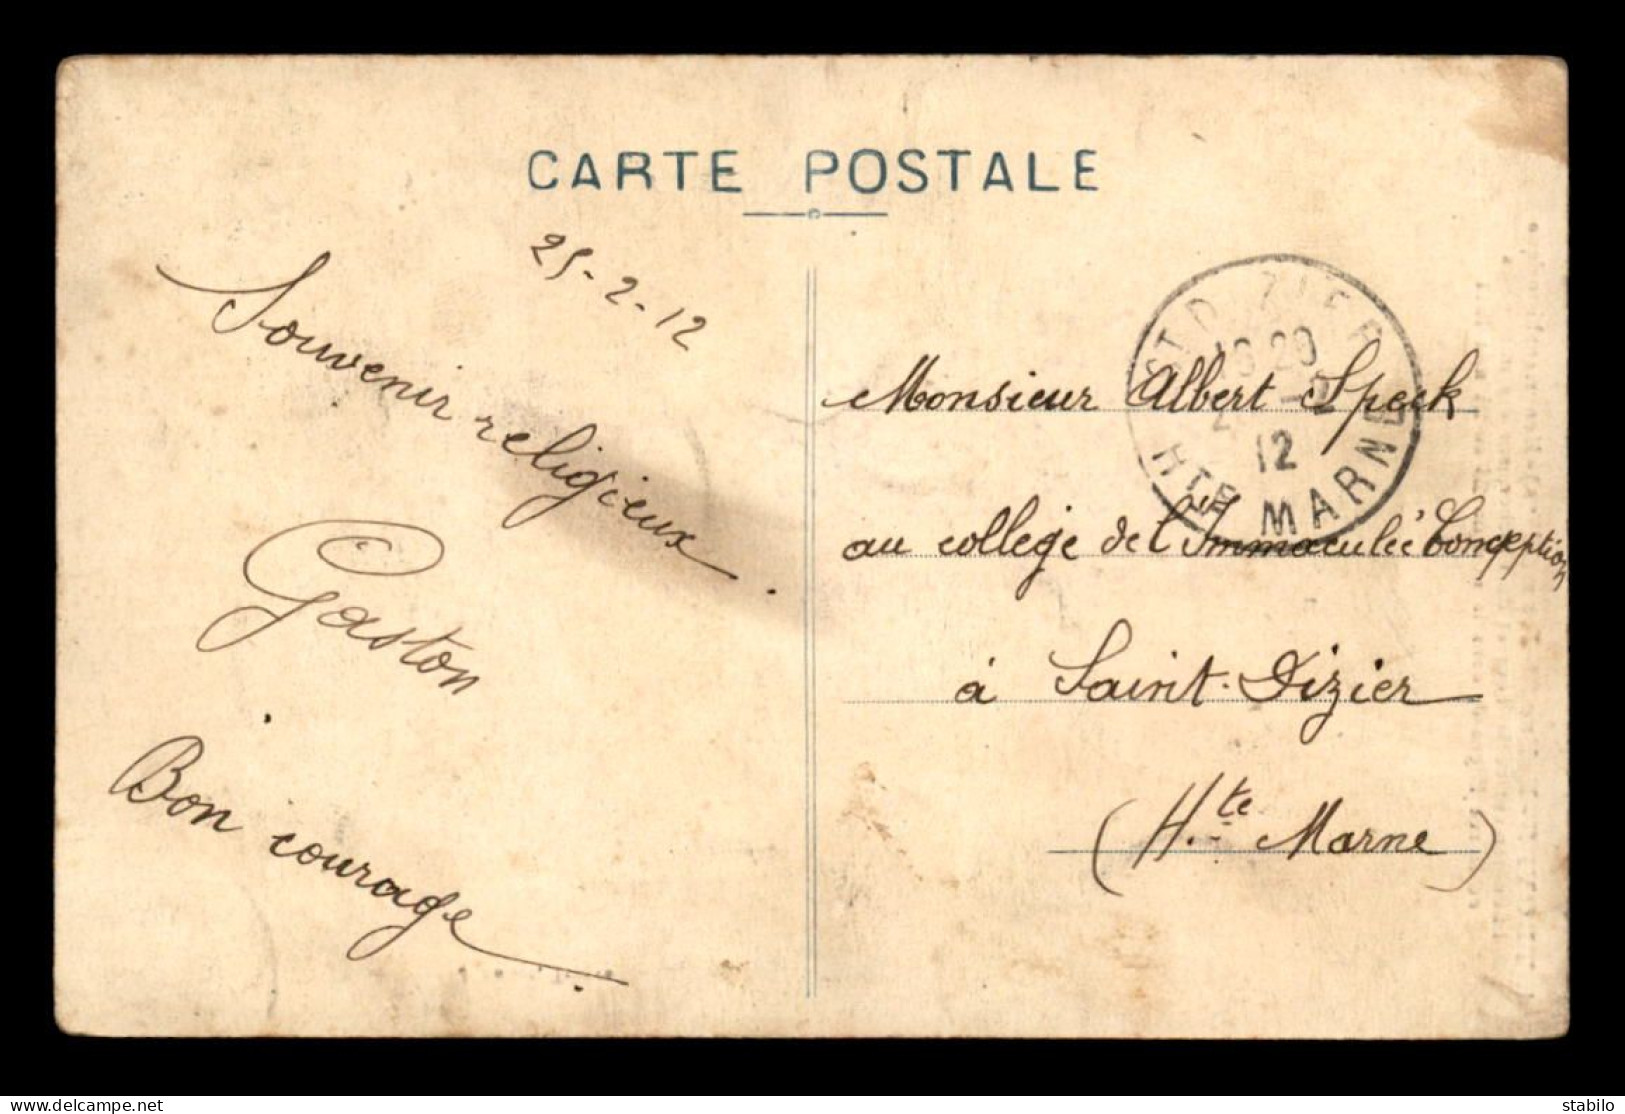 CARTE POSTALE
25-2-12
Souvenir religieux.
Gaston
Bon courage.
ST DIZIER
12
HTE MARNE
Monsieur Albert Speck
au collège de l'Immaculée Conception
à Saint-Dizier
(H.te Marne)
www.delcampe.net
stabilo